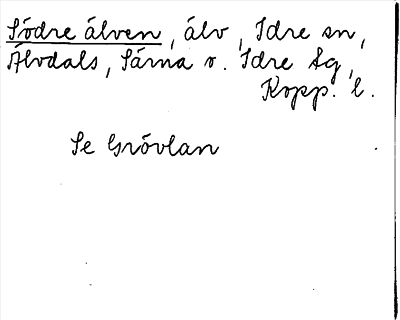 Södre älven, älv, Idre sn,
Älvdals, Särna o. Idre tg,
Kopp. l.
Se Grövlan